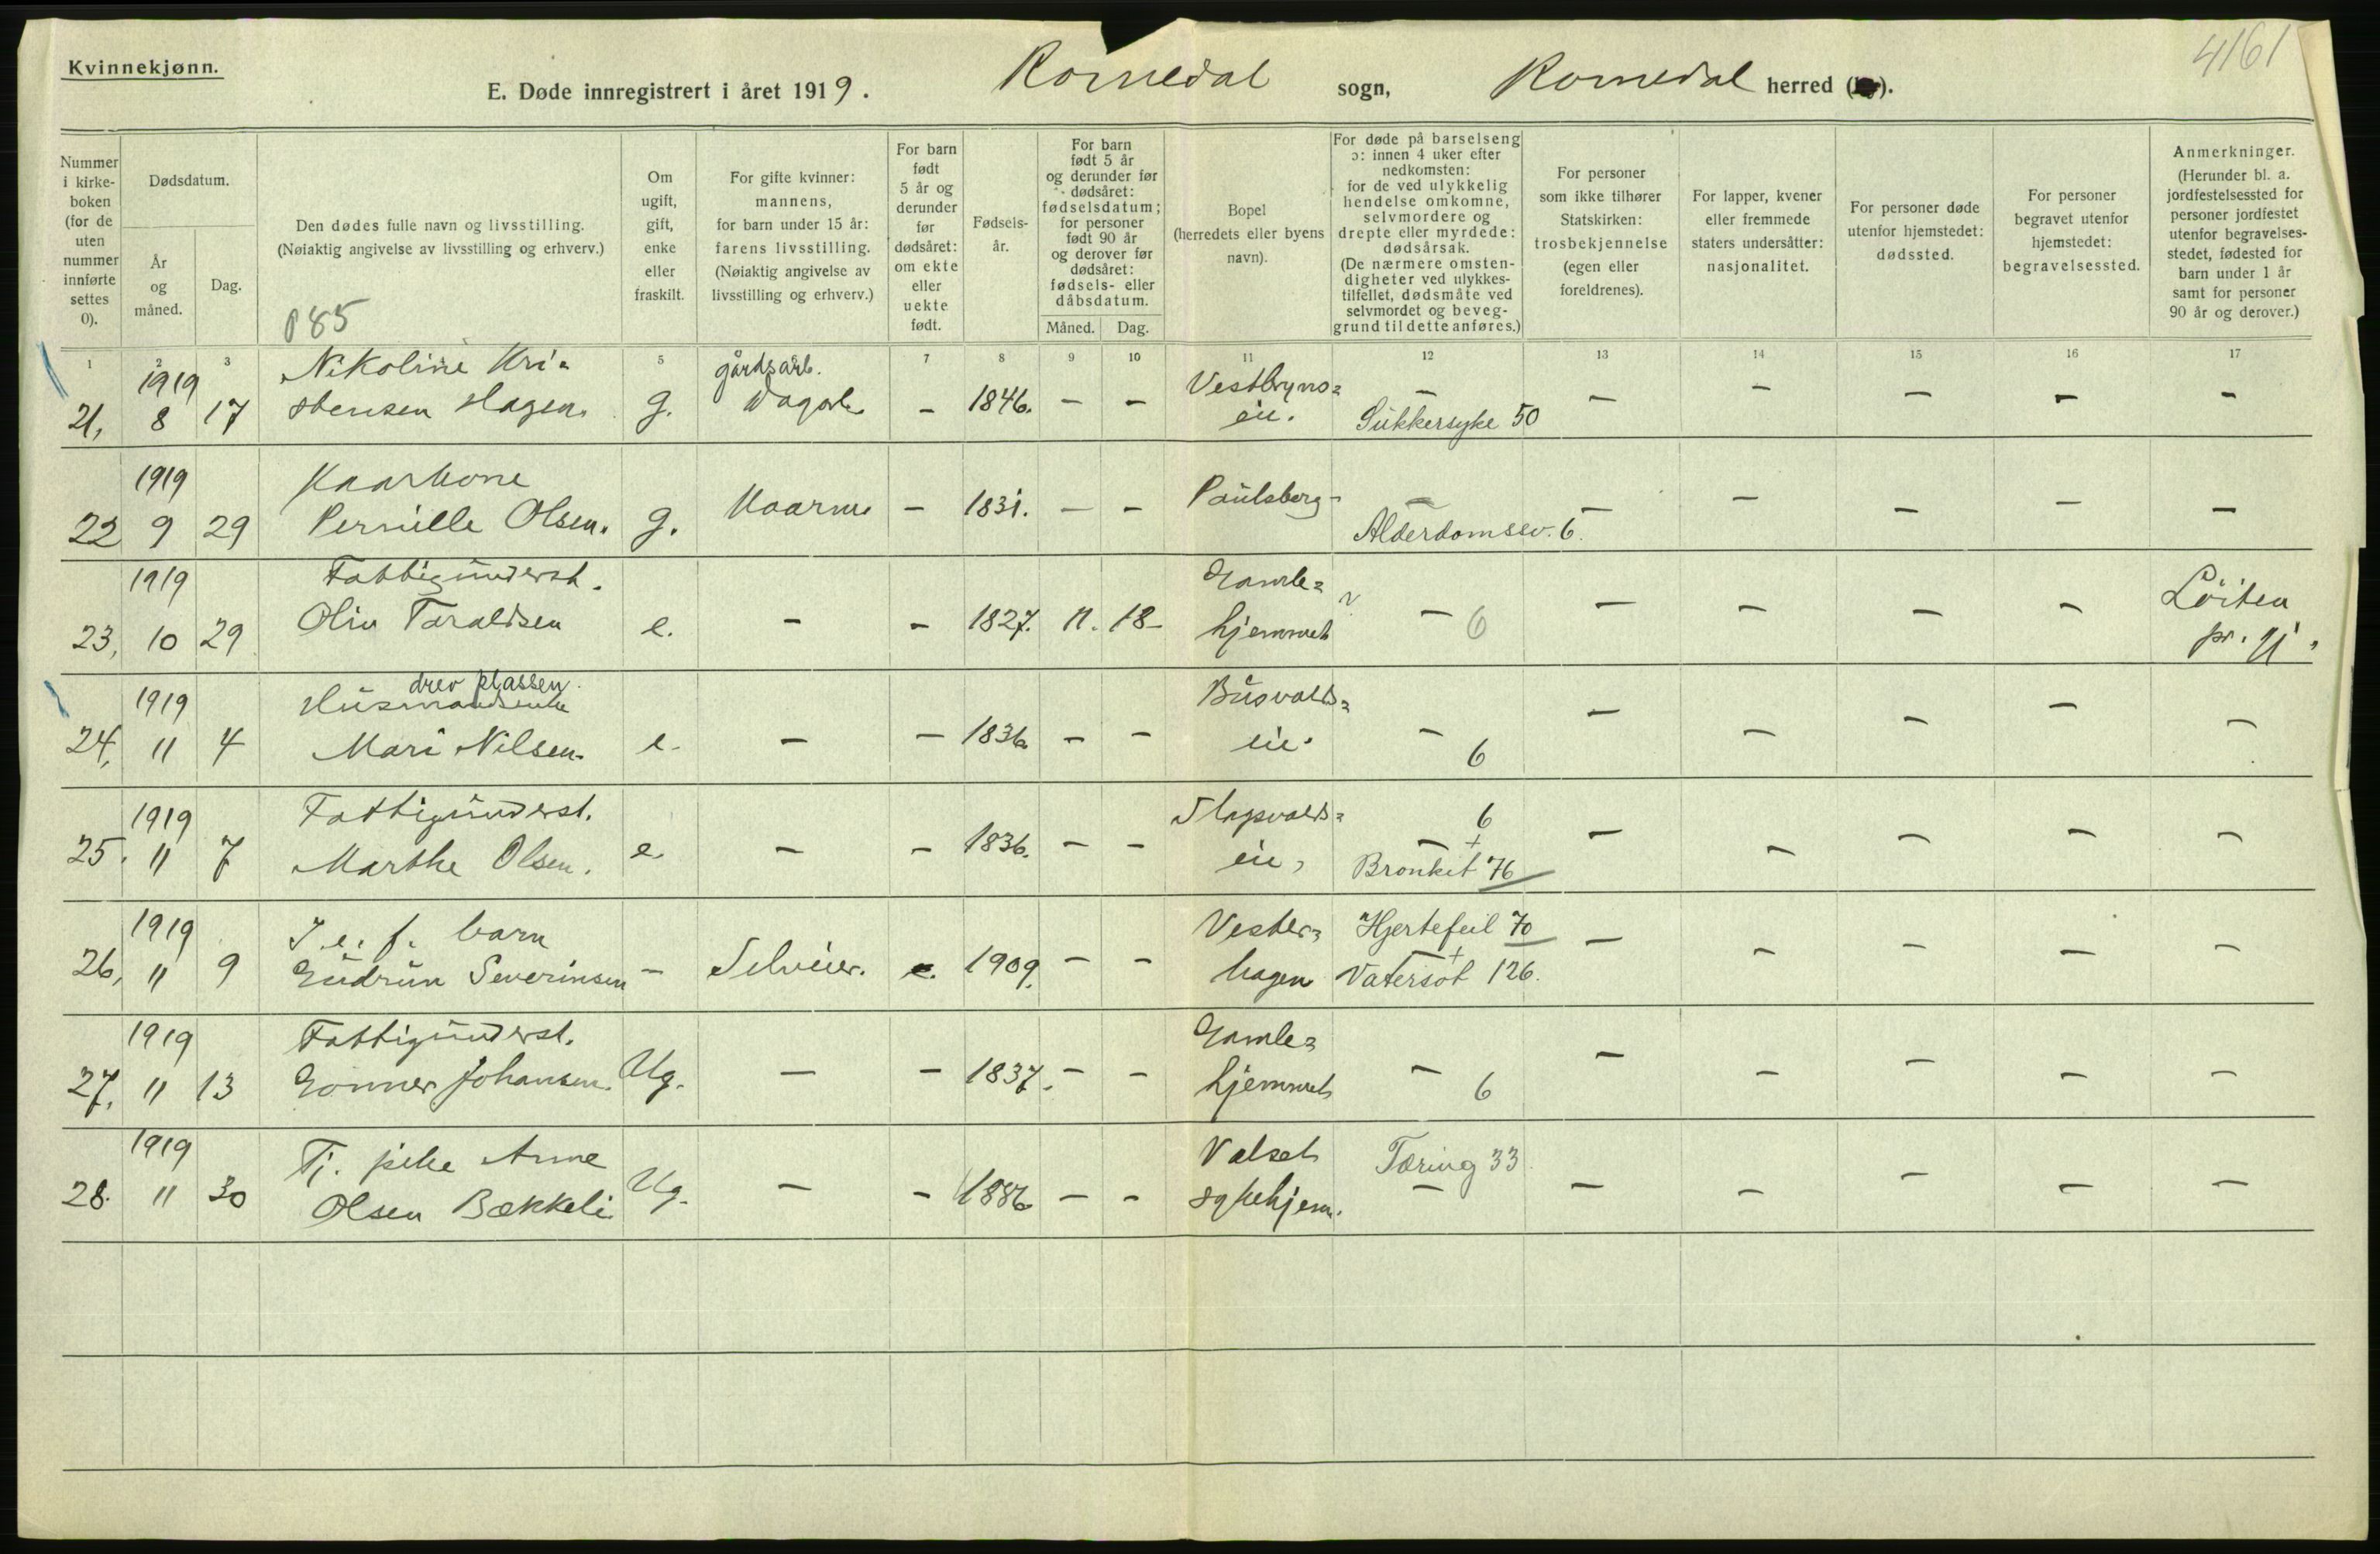 Kvinnekjønn.
4161
E. Døde innregistrert i året 1919. Romedal sogn, Romedal herred
Nummer i kirke-boken (for de uten nummer innførte settes 0).
Dødsdatum.
År og måned.
Dag.
Den dødes fulle navn og livsstilling.
(Nøiaktig angivelse av livsstilling og erhverv.)
085
Om ugift, gift, enke eller fraskilt.
For gifte kvinner: mannens, for barn under 15 år: farens livsstilling. (Nøiaktig angivelse av livsstilling og erhverv.)
For barn født 5 år og derunder før dødsåret: om ekte eller uekte født.
Fødsels-år.
For barn født 5 år og derunder før dødsåret: fødselsdatum; for personer født 90 år og derover før dødsåret: fødsels- eller dåbsdatum.
Måned. Dag.
Bopel (herredets eller byens navn).
For døde på barselseng ɔ: innen 4 uker efter nedkomsten: for de ved ulykkelig hendelse omkomne, selvmordere og drepte eller myrdede: dødsårsak. (De nærmere omsten-digheter ved ulykkes-tilfellet, dødsmåte ved selvmordet og beveg-grund til dette anføres.)
For personer som ikke tilhører Statskirken: trosbekjennelse (egen eller foreldrenes).
For lapper, kvener eller fremmede staters undersåtter: nasjonalitet.
For personer døde utenfor hjemstedet: dødssted.
For personer begravet utenfor hjemstedet: begravelsessted.
Anmerkninger. (Herunder bl. a. jordfestelsessted for personer jordfestet utenfor begravelses-stedet, fødested for barn under 1 år samt for personer 90 år og derover.)
1 2 3 5 7 8 9 10 11 12 13 14 15 16 17
1919 Nikoline Kri= gårdsarb. Vestbyns= –
21, 8 17 stensen Hagen. g. Dagarb. – 1846. – – eie. Sukkersyke 50 – – – – –
1919 Kaarkone
22 9 29 Pernille Olsen. g. Kaarm. – 1831. – – Paulsberg – Alderdomssv. 6. – – – – –
1919 Fattigunderst. Gamle=
23, 10 29 Olin Taraldsen e. – – 1827. 11. 18 – hjemmet – 6 – – – – Löiten
pr. Hj.
drev plassen.
1919 Husmandsenke Busvalds=
24, 11 4 Mari Nilsen. e. – – 1836 – – eie. – 6 – – – – –
1919 Fattigunderst. Slagsvalds= 6
25. 11 7 Marthe Olsen. e. – – 1836. – – eie, – + – – – – –
Bronkit 76
1919 I. e. f. barn Vester= Hjertefeil 70
26, 11 9 Gudrun Severinsen – Selveier. e. 1909. – – hagen – + Vatersot 126. – – – – –
1919 Fattigunderst. Gamle=
27, 11 13 Gonner Johansen. Ug. – – 1837. – – hjemmet – 6 – – – – –
1919 Tj. pike Anne Valset Tæring 33.
28. 11 30 Olsen Bækkeli Ug. – – 1886 – – sykehjem. – – – – – –